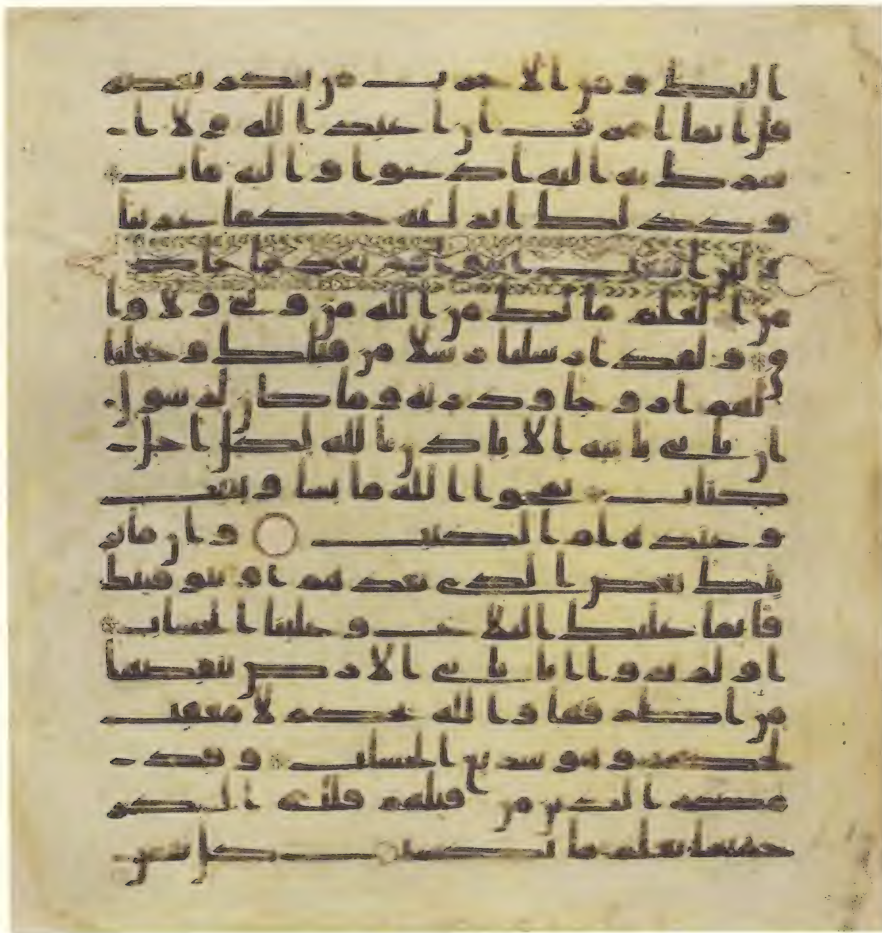 اليك ومن الاحزاب من ينكر بعضه
قل انما امرت ان اعبد الله ولا ا
شرك به اليه ادعوا واليه ماب
وكذلك انزلنه حكما عربيا
ولئن اتبعت اهواهم بعد ما جاك
من العلم ما لك من الله من ولي ولا وا
ق ولقد ارسلنا رسلا من قبلك وجعلنا
لهم ازوجا وذريه وما كان لرسول
ان ياتي بايه الا باذن الله لكل اجل
كتاب يمحوا الله ما يشا ويثبت
وعنده ام الكتب وان ما نر
ينك بعض الذي نعدهم او نتوفينك
فانما عليك البلاغ وعلينا الحساب
اولم يروا انا ناتي الارض ننقصها
من اطرفها والله يحكم لا معقب
لحكمه وهو سريع الحساب وقد
مكر الذين من قبلهم فلله المكر
جميعا يعلم ما تكسب كل نفس